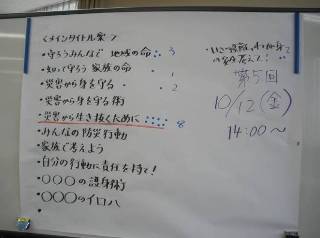 <メインタイトル案>
・守ろうみんなで 地域の命 3
・知って守ろう 家族の命 1
・災害から身を守る 2
・災害から身を守る術
・災害から生き抜くために 8
・みんなの防災行動
・家族で考えよう
・自分の行動に責任を持て!
・○○○の護身術
・○○○のイロハ
・
・いざ
考えて!
第5回
10/12(金)
14:00〜